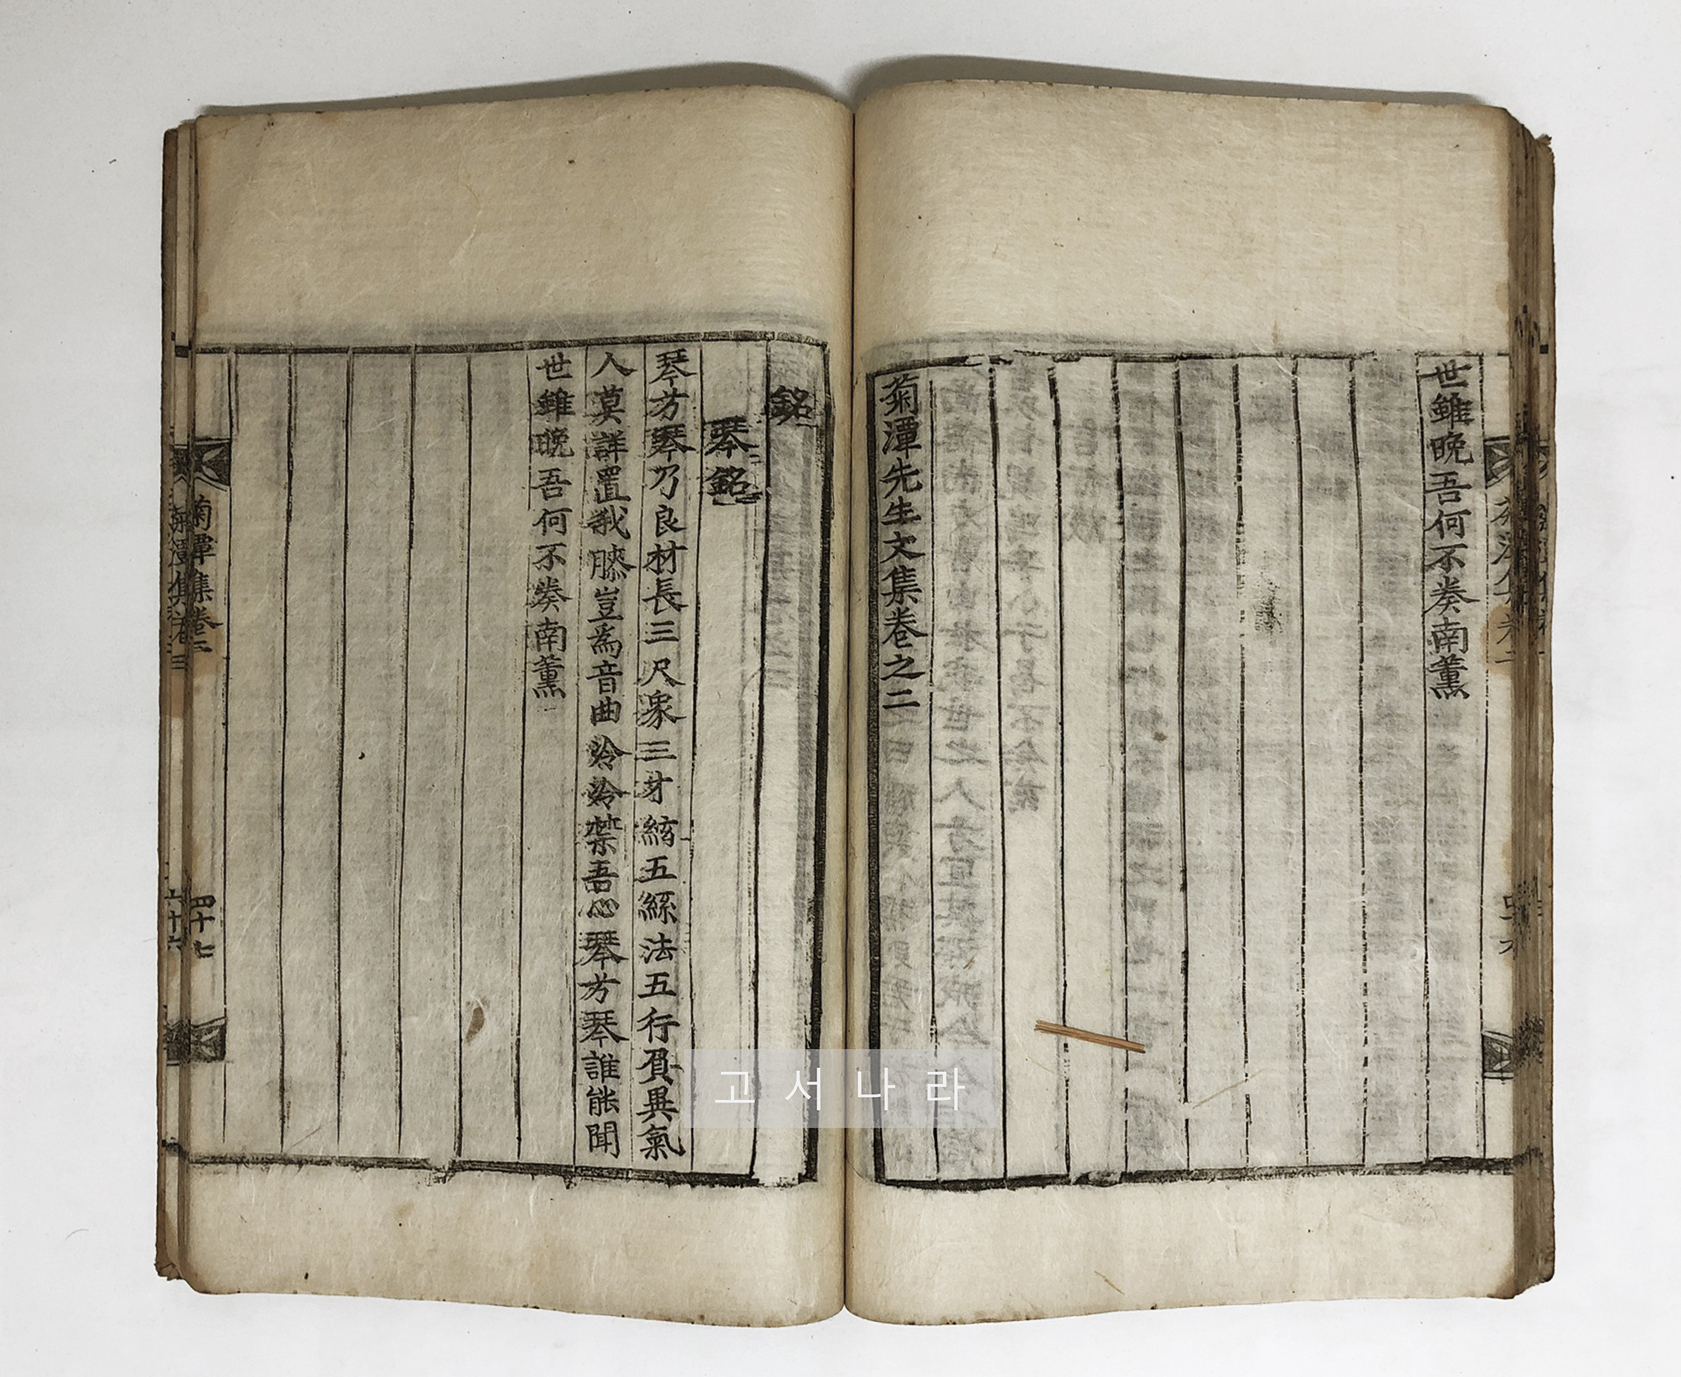 世雖晩吾何不奏南薰
菊潭先生文集卷之二
銘
琴銘
琴方琴乃良材長三尺象三才絃五絲法五行負異氣
人莫詳置我膝豈爲音曲泠泠禁吾心琴方琴誰能聞
世雖晩吾何不奏南薰
菊潭集卷二
四十七
고서나라